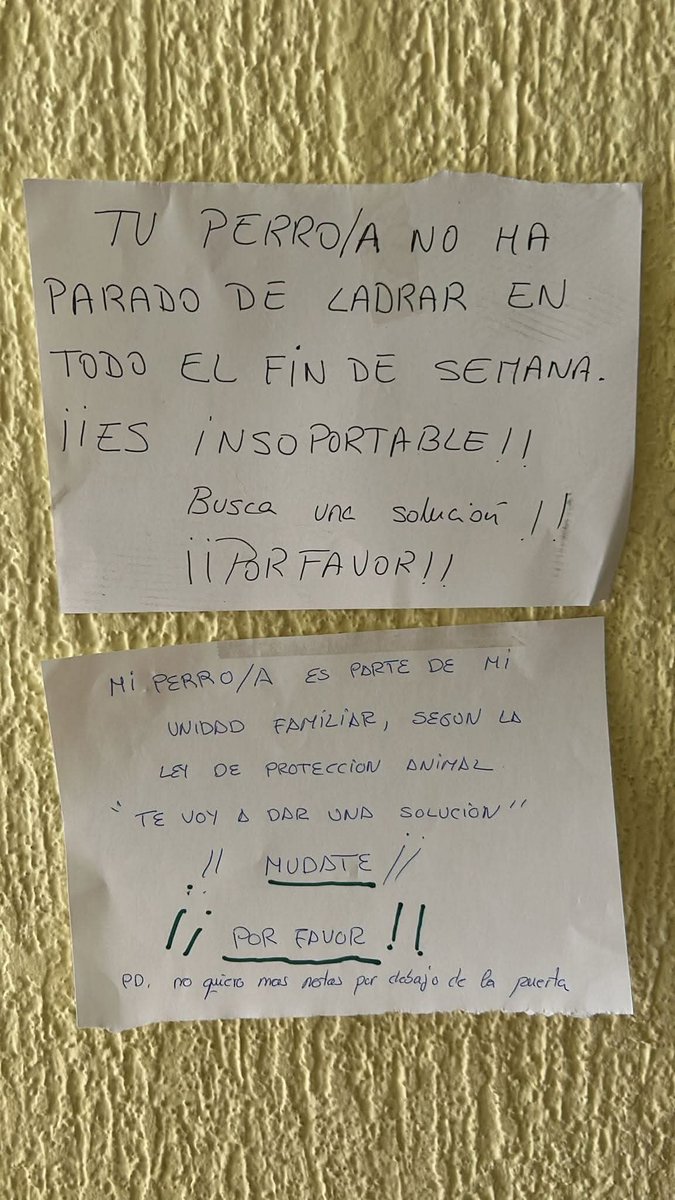 TU PERRO/A NO HA
PARADO DE LADRAR EN
TODO EL FIN DE SEMANA.
¡¡ES INSOPORTABLE!!
Busca una solución !!
¡¡POR FAVOR!!
MI PERRO/A ES PARTE DE MI
UNIDAD FAMILIAR, SEGUN LA
LEY DE PROTECCION ANIMAL
"TE VOY A DAR UNA SOLUCIÒN"
!! MUDATE ¡¡
¡¡ POR FAVOR !!
PD. no quiero mas notas por debajo de la puerta